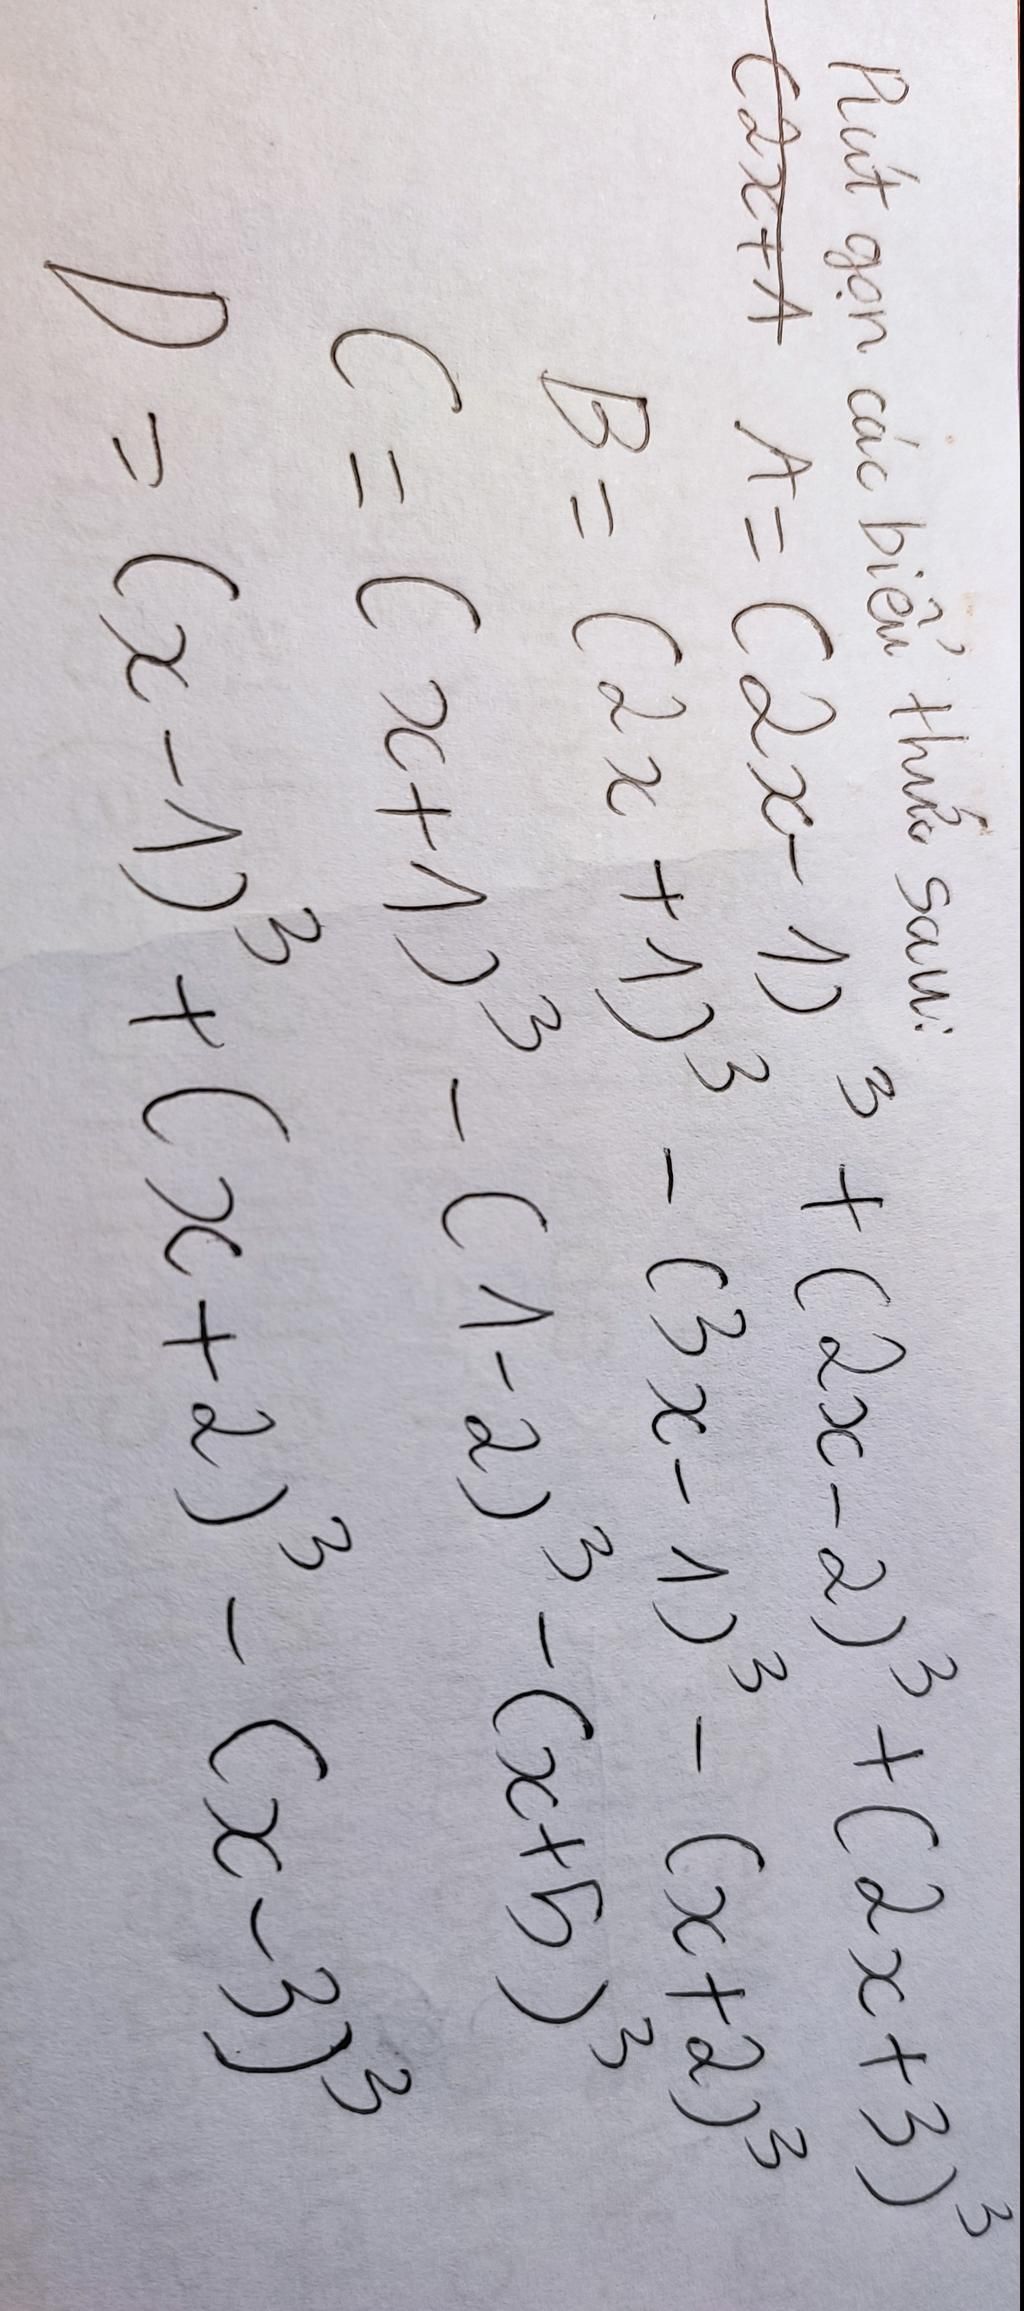 Rút gọn các biểu thức sau:
(2x+1 A = (2x - 1)³ + (2x - 2)³ + (2x + 3)³
B = (2x + 1)³ - (3x - 1)³ - (x + 2)³
C = (x + 1)³ - (1 - 2)³ - (x + 5)³
D = (x - 1)³ + (x + 2)³ - (x - 3)³